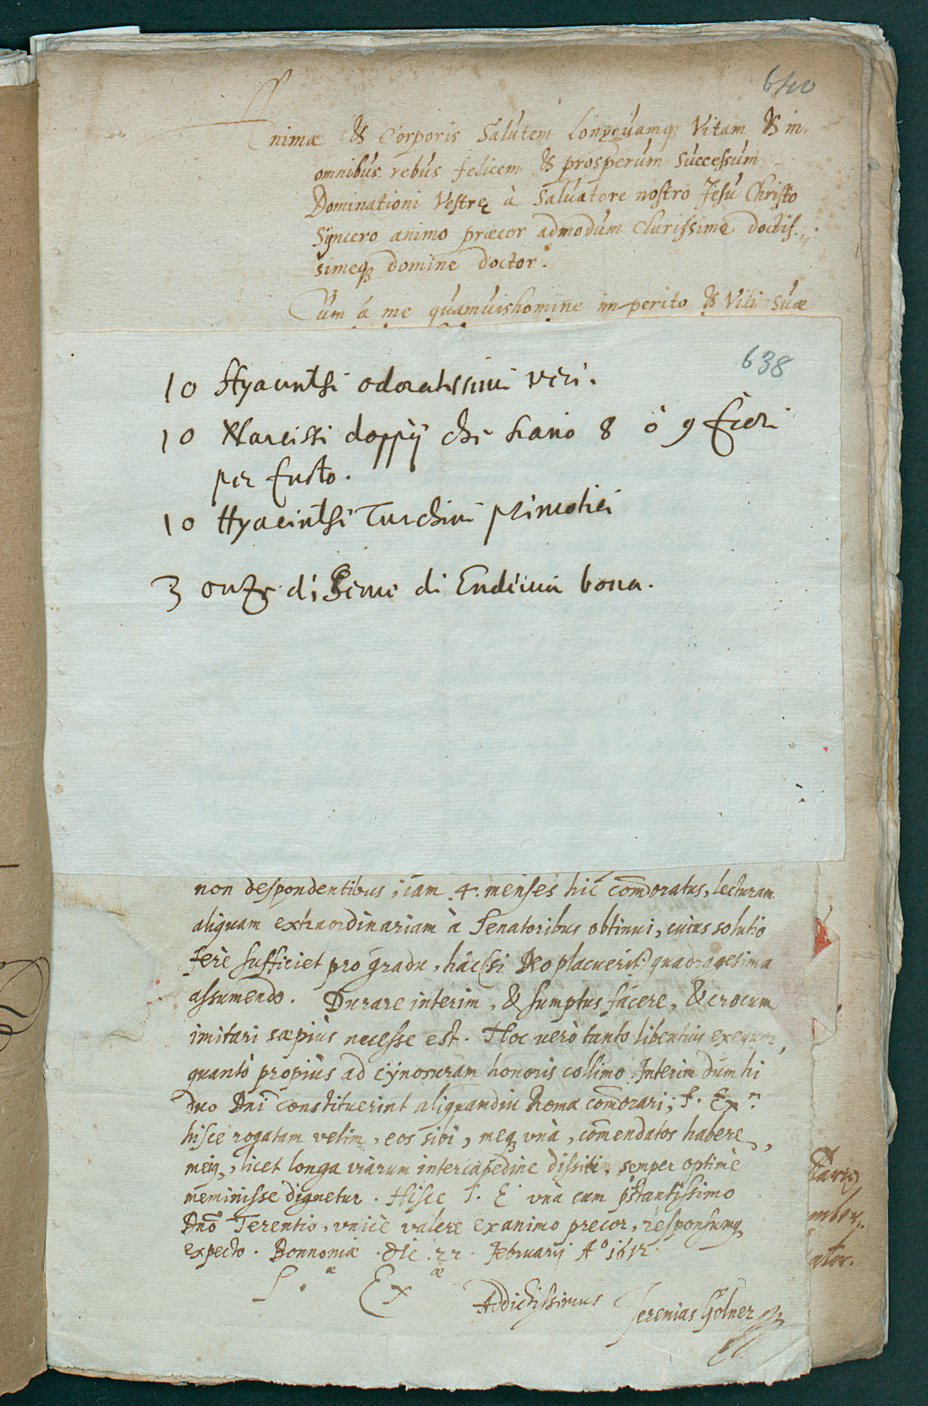 640
Animæ & Corporis Salutem longæuamq; Vitam & in
omnibus rebus felicem & prosperum successum
Dominationi Vestrę à Saluatore nostro Jesu Christo
Syncero animo præcor admodum clarissime doctis-
simeq; domine doctor.
Cum à me quamuis homine imperito & Vili suæ
638
10 Hyacinthi odoratissimi veri.
10 Narcissi doppij che siano 8 ò 9 fiori
per fusto.
10 Hyacinthi Turchini primotici
3 onze di Seme di Endiuia bona.
non despondentibus, iam 4. menses hic com̄oratus, lecturam
aliquam extraordinariam à Senatoribus obtinui, cuius solutio
ferè sufficiet pro gradu, hâc (si Deo placuerit) quadragesima
assumendo. Durare interim, & sumptus facere, & crocum
imitari sæpius necesse est. Hoc uerò tanto libentius exequor,
quantò propius ad cynosuram honoris collimo. Interim dum hi
duo Dn̄i constituerint aliquamdiu Romæ com̄orari, S. Ex.
hisce rogatam velim, eos sibi, meq; vnà, com̄endatos habere,
meiq;, licet longa viarum intercapedine dissiti, semper optimè
meminisse dignetur. Hisce S. E vna cum præstantissimo
Dn̄o Terentio, vnicè valere ex animo precor, responsumq;
expecto. Bonnoniæ. die. 22. Februarij Aº 1612.
S.æ Exæ
Addictissimus Jeremias Golner